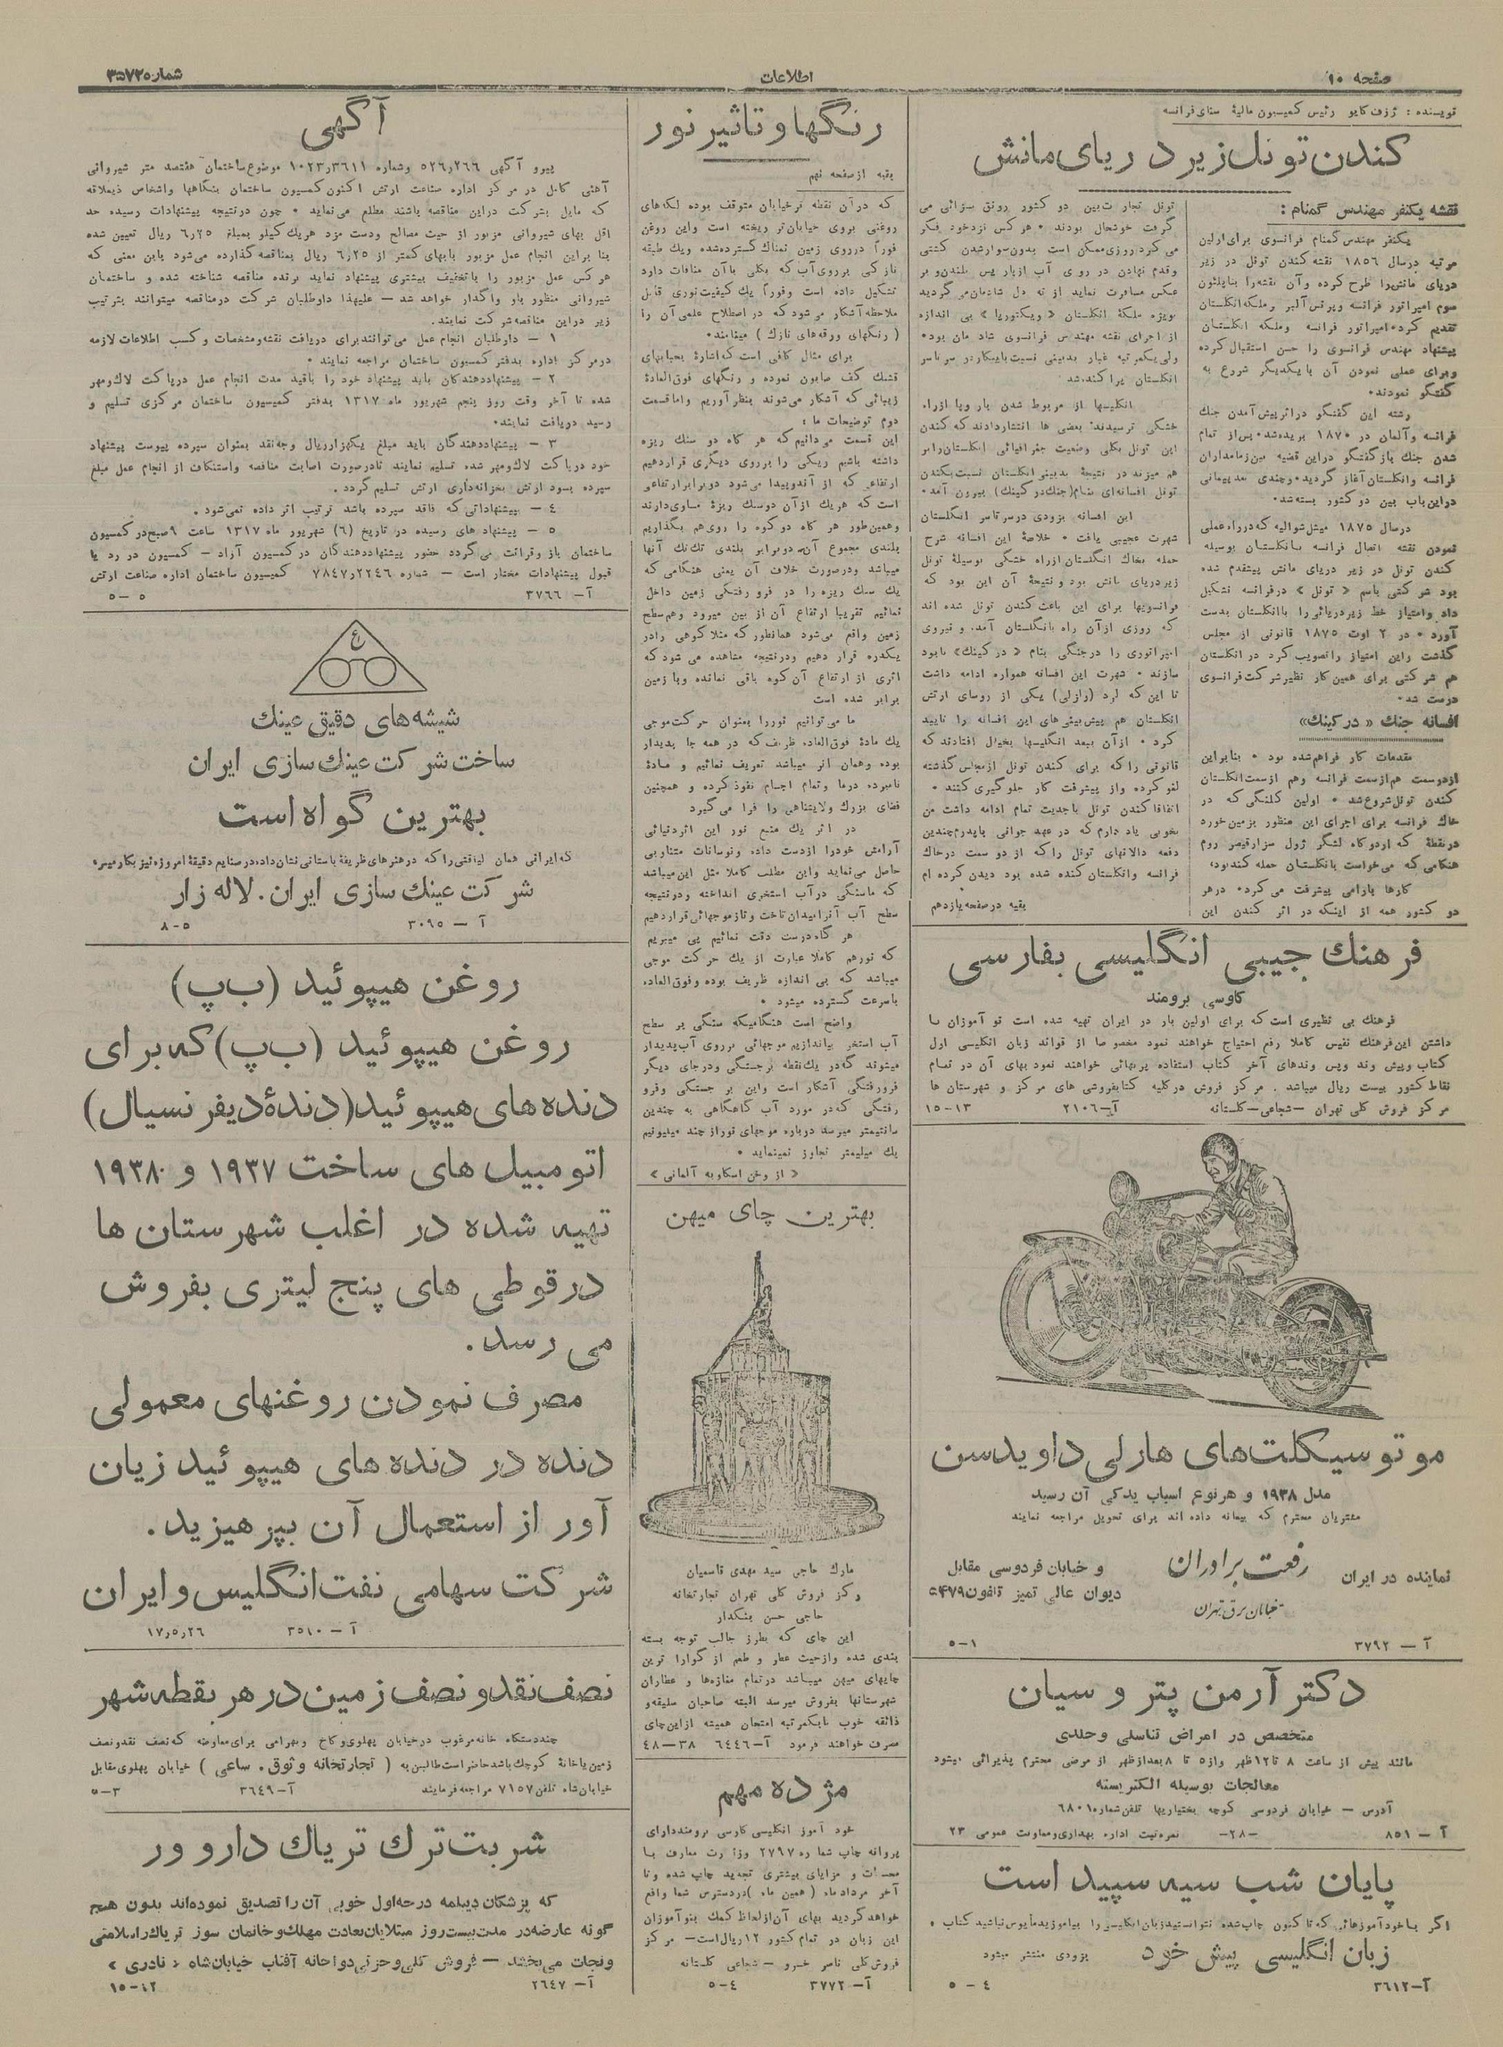 صفحه ۱۰
اطلاعات
نویسنده : ژزف کایو رئیس کمیسیون مالیهٔ سنای فرانسه
کندن تونل زیر دریای مانش
نقشه یکنفر مهندس گمنام :
یکنفر مهندس گمنام فرانسوی برای اولین
مرتبه درسال ۱۸۵۶ نقشه کندن تونل در زیر
دریای مانش را طرح کرده وآن نقشه را بناپلئون
سوم امپراتور فرانسه وپرنس آلبر وملکه انگلستان
تقدیم کرد. امپراتور فرانسه وملکه انگلستان
پیشنهاد مهندس فرانسوی را حسن استقبال کرده
وبرای عملی نمودن آن بایکدیگر شروع به
گفتگو نمودند.
رشته این گفتگو دراثر پیش آمدن جنك
فرانسه وآلمان در ۱۸۷۰ بریده شد. پس از تمام
شدن جنك بازگفتگو دراین قضیه بین زمامداران
فرانسه وانگلستان آغاز گردید. وچندی بعد پیمانی
دراین باب بین دو کشور بسته شد.
درسال ۱۸۷۵ میشل شوالیه که درراه عملی
نمودن نقشه اتصال فرانسه بانگلستان بوسیله
کندن تونل در زیر دریای مانش پیشقدم شده
بود شرکتی باسم « تونل » درفرانسه تشکیل
داد وامتیاز خط زیردریائی را باانگلستان بدست
آورد . در ۲ اوت ۱۸۷۵ قانونی از مجلس
گذشت واین امتیاز راتصویب کرد در انگلستان
هم شرکتی برای همین کار نظیر شرکت فرانسوی
درست شد.
افسانه جنك « درکینك»
مقدمات کار فراهم شده بود . بنابراین
ازدوسمت هم ازسمت فرانسه وهم ازسمت انگلستان
کندن تونل شروع شد . اولین کلنگی که در
خاك فرانسه برای اجرای این منظور بزمین خورد
درنقطهٔ که اردوگاه لشگر ژول سزار قیصر روم
هنگامی که می‌خواست بانگلستان حمله کند بود.
کارها بآرامی پیشرفت می کرد. درهر
دو کشور همه از اینکه در اثر کندن این
تونل تجارت بین دو کشور رونق سزائی می
گرفت خوشحال بودند . هر کس نزدخود فکر
می کرد روزی ممکن است بدون سوارشدن کشتی
وقدم نهادن در روی آب ازپاریس بلندن و بر
عکس مسافرت نماید از ته دل شادمان می گردید
بویژه ملکهٔ انگلستان «ویکتوریا» بی اندازه
از اجرای نقشه مهندس فرانسوی شاد مان بود.
ولی یکمرتبه غبار بدبینی نسبت باینکار در سرتاسر
انگلستان پراکنده شد
انگلیسها از مربوط شدن باروپا ازراه
خشکی ترسیدند. بعضی ها انتقاد دادند که کندن
این تونل بکلی وضعیت جغرافیائی انگلستان رابر
هم میزند در نتیجهٔ بدبینی انگلستان نسبت بکندن
تونل افسانه‌ای بنام (جنك درکینك) بیرون آمد.
این افسانه بزودی درسرتاسر انگلستان
شهرت عجیبی یافت . خلاصهٔ این افسانه شرح
حمله بخاك انگلستان ازراه خشکی بوسیلهٔ تونل
زیردریای مانش بود ونتیجهٔ آن این بود که
فرانسویها برای این باعث کندن تونل شده اند
که روزی ازآن راه بانگلستان آمده و نیروی
امپراتوری را درجنگی بنام «درکینك» نابود
سازند . شهرت این افسانه همواره ادامه داشت
تا این که لرد (رازلی) یکی از روسای ارتش
انگلستان هم پیش بینی های این افسانه را تایید
کرد . ازآن ببعد انگلیسها بخیال افتادند که
قانونی را که برای کندن تونل ازمجلس گذشته
لغو کرده واز پیشرفت کار جلوگیری کنند .
اتفاقا کندن تونل باجدیت تمام ادامه داشت من
بخوبی یاد دارم که در عهد جوانی باپدرم چندین
دفعه دالانهای تونل را که از دو سمت درخاك
فرانسه وانگلستان کنده شده بود دیدن کرده ام
بقیه در صفحه یازدهم
فرهنك جیبی انگلیسی بفارسی
کاوسی برومند
فرهنك بی نظیری است که برای اولین بار در ایران تهیه شده است نو آموزان با
داشتن این فرهنك نفیس کاملا رفع احتیاج خواهند نمود مخصوصا از قواعد زبان انگلیسی اول
کتاب وپیش وند وپس وندهای آخر کتاب استفاده پربهائی خواهند نمود بهای آن در تمام
نقاط کشور بیست ریال میباشد . مرکز فروش درکلیه کتابفروشی های مرکز و شهرستان ها
مرکز فروش کلی تهران —شجاعی—گلستانه آ—۲۱۰۶ ۱۳—۱۵
موتوسیکلت‌های هارلی داویدسن
مدل ۱۹۳۸ و هرنوع اسباب یدکی آن رسید
مشتریان محترم که بیعانه داده اند برای تحویل مراجعه نمایند
نماینده در ایران
رفعت برادران
خیابان برق تهران
و خیابان فردوسی مقابل
دیوان عالی تمیز تلفون ۵۴۷۹
آ — ۳۷۹۲ ۱—۵
دکتر آرمن پتروسیان
متخصص در امراض تناسلی وجلدی
مانند پیش از ساعت ۸ تا ۱۲ ظهر واز ۵ تا ۸ بعدازظهر از مرضی محترم پذیرائی میشود
معالجات بوسیله الکتریسته
آدرس — خیابان فردوسی کوچه بختیاریها تلفن شماره ۶۸۰۱
آ — ۸۵۱ —۲۸— نمره ثبت اداره بهداری ومعاونت عمومی ۲۳
پایان شب سیه سپید است
اگر با خودآموزهائی که تا کنون چاپ شده نتوانستید زبان انگلیسی را بیاموزید مأیوس نباشید کتاب .
زبان انگلیسی پیش خود بزودی منتشر میشود
آ—۳۶۱۲ ۴ — ۵
رنگها و تاثیر نور
بقیه از صفحه نهم
که درآن نقطه ازخیابان متوقف بوده لکه‌های
روغنی بروی خیابان تر ریخته است واین روغن
فوراً درروی زمین نمناك گسترده شده ویك طبقه
نازکی برروی آب که بکلی باآن منافات دارد
تشکیل داده است وفوراً یك کیفیت نوری قابل
ملاحظه آشکار می‌شود که در اصطلاح علمی آن را
( رنگهای ورقه‌های نازك ) مینامند.
برای مثال کافی است که اشارهٔ بحبابهای
قشنك کف صابون نموده و رنگهای فوق العادهٔ
زیبائی که آشکار می‌شوند بنظر آوریم واما قسمت
دوم توضیحات ما :
این قسمت می‌دانیم که هر گاه دو سنك ریزه
داشته باشیم ویکی را برروی دیگری قراردهیم
ارتفاعی که از آندو پیدا می‌شود دوبرابر ارتفاعی
است که هریك ازآن دوسنك ریزهٔ مساوی دارند
وهمین‌طور هر گاه دوکوه را روی هم بگذاریم
بلندی مجموع آن دوبرابر بلندی تك تك آنها
میباشد ودرصورت خلاف آن یعنی هنگامی که
یك سنك ریزه را در فرورفتگی زمین داخل
نمائیم تقریبا ارتفاع آن از بین میرود وهم سطح
زمین واقع می‌شود همانطور که مثلا کوهی رادر
یکدره قرار دهیم ودرنتیجه مشاهده می شود که
اثری از ارتفاع آن کوه باقی نمانده وبا زمین
برابر شده است
ما می‌توانیم نوررا بعنوان حرکت موجی
یك مادهٔ فوق العاده ظریف که در همه جا پدیدار
بوده وهمان اثر میباشد تعریف نمائیم و مادهٔ
نامبرده درما وتمام اجسام نفوذ کرده و همچنین
فضای بزرك ولایتناهی را فرا می گیرد
در اثر یك منبع نور این اثر دنیائی
آرامش خودرا ازدست داده ونوسانات متناوبی
حاصل می‌نماید واین مطلب کاملا مثل این میباشد
که ماسنگی درآب استخری انداخته ودرنتیجه
سطح آب آنرا میدان تاخت وتاز موجهائی قراردهیم
هر گاه درست دقت نمائیم پی میبریم
که نورهم کاملا عبارت از یك حرکت موجی
میباشد که بی اندازه ظریف بوده وفوق العاده
باسرعت گسترده میشود .
واضح است هنگامیکه سنگی بر سطح
آب استخر بیاندازیم موجهائی برروی آب پدیدار
میشوند که در یك نقطه برجستگی ودرجای دیگر
فرورفتگی آشکار است واین بر جستگی وفرو
رفتگی که در مورد آب گاهگاهی به چندین
سانتیمتر میرسد درباره موجهای نوراز چند میلیونیم
یك میلیمتر تجاوز نمینماید .
« از وخن اسکاو به آلمانی »
بهترین چای میهن
مارك حاجی سید مهدی قاسمیان
مرکز فروش کلی تهران تجارتخانه
حاجی حسن بنکدار
این چای که بطرز جالب توجه بسته
بندی شده وازحیث عطر و طعم از گوارا ترین
چایهای میهن میباشد درتمام مغازه‌ها و عطاران
شهرستانها بفروش میرسد البته صاحبان سلیقه و
ذائقه خوب بایکمرتبه امتحان همیشه ازاین چای
مصرف خواهند فرمود آ—۶۴۴۶ ۳۸—۴۸
مژده مهم
خود آموز انگلیسی کاوسی برومند دارای
پروانه چاپ شماره ۲۷۹۷ وزارت معارف با
محسنات و مزایای بیشتری تجدید چاپ شده و تا
آخر مرداد ماه ( همین ماه ) دردسترس شما واقع
خواهد گردید بهای آن ازلحاظ کمك بنو آموزان
این زبان در تمام کشور ۱۲ ریال است— مرکز
فروش کلی ناصر خسرو — شجاعی گلستانه
آ— ۳۷۷۲ ۴—۵
آگهی
پیرو آگهی ۵۲۶٫۲۶۶ وشماره ۱۰۲۳٫۳۶۱۱ موضوع ساختمان هفتصد متر شیروانی
آهنی کامل در مرکز اداره صناعت ارتش اکنون کمسیون ساختمان بنگاهها واشخاص ذیعلاقه
که مایل بشرکت دراین مناقصه باشند مطلع می‌نماید . چون درنتیجه پیشنهادات رسیده حد
اقل بهای شیروانی مزبور از حیث مصالح ودست مزد هریك کیلو بمبلغ ۶٫۲۵ ریال تعیین شده
بنا براین انجام عمل مزبور بابهای کمتر از ۶٫۲۵ ریال بمناقصه گذارده می‌شود باین معنی که
هرکس عمل مزبور را باتخفیف بیشتری پیشنهاد نماید برنده مناقصه شناخته شده و ساختمان
شیروانی منظور باو واگذار خواهد شد — علیهذا داوطلبان شرکت درمناقصه میتوانند بترتیب
زیر دراین مناقصه شرکت نمایند.
۱ — داوطلبان انجام عمل می‌توانند برای دریافت نقشه ومشخصات و کسب اطلاعات لازمه
درمرکز اداره بدفتر کمسیون ساختمان مراجعه نمایند .
۲ — پیشنهاد دهندکان باید پیشنهاد خود را باقید مدت انجام عمل درپاکت لاك ومهر
شده تا آخر وقت روز پنجم شهریور ماه ۱۳۱۷ بدفتر کمیسیون ساختمان مرکزی تسلیم و
رسید دریافت نمایند.
۳ — پیشنهاددهندگان باید مبلغ یکهزارریال وجه نقد بعنوان سپرده پیوست پیشنهاد
خود درپاکت لاك ومهر شده تسلیم نمایند تادرصورت اصابت مناقصه واستنکاف از انجام عمل مبلغ
سپرده بسود ارتش بخزانه‌داری ارتش تسلیم گردد .
۴ — بپیشنهاداتی که فاقد سپرده باشد ترتیب اثر داده نمی‌شود .
۵ — پیشنهاد های رسیده در تاریخ (۶) شهریور ماه ۱۳۱۷ ساعت ۹ صبح در کمسیون
ساختمان باز وقرائت می گردد حضور پیشنهاددهندگان درکمسیون آزاد — کمسیون در رد یا
قبول پیشنهادات مختار است — شماره ۷۸۴۷٫۲۲۴۶ کمیسیون ساختمان اداره صناعت ارتش
آ— ۳۷۶۶ ۵ —۵
ع
شیشه‌های دقیق عینك
ساخت شرکت عینك سازی ایران
بهترین گواه است
که ایرانی همان لیاقتی را که در هنرهای ظریفهٔ باستانی نشان داده، در صنایع دقیقهٔ امروزه نیز بکار میبرد
شرکت عینك سازی ایران. لاله زار
آ — ۳۰۹۵ ۵—۸
روغن هیپوئید (ب پ)
روغن هیپوئید (ب پ) که برای
دنده‌های هیپوئید (دندهٔ دیفرنسیال)
اتومبیل های ساخت ۱۹۳۷ و ۱۹۳۸
تهیه شده در اغلب شهرستان ها
درقوطی های پنج لیتری بفروش
می رسد.
مصرف نمودن روغنهای معمولی
دنده در دنده‌های هیپوئید زیان
آور از استعمال آن بپرهیزید.
شرکت سهامی نفت انگلیس و ایران
آ — ۳۵۱۰ ۱۷٫۵٫۲۶
نصف نقد و نصف زمین در هر نقطه شهر
چند دستگاه خانه مرغوب درخیابان پهلوی وکاخ وبهرامی برای معاوضه که نصف نقد ونصف
زمین یا خانهٔ کوچك باشد حاضر است طالبین به ( تجارتخانه وثوق. ساعی ) خیابان پهلوی مقابل
خیابان شاه تلفن ۷۱۵۷ مراجعه فرمایند آ—۳۶۴۹ ۳—۵
شربت ترك تریاك دارو ور
که پزشکان دیپلمه درجه اول خوبی آن را تصدیق نموده‌اند بدون هیچ
گونه عارضه در مدت بیست روز مبتلایان بعادت مهلك و خانمان سوز تریاك را سلامتی
ونجات می‌بخشد — فروش کلی و جزئی دواخانه آفتاب خیابان شاه « نادری »
آ— ۲۶۴۷ ۱۲—۱۵